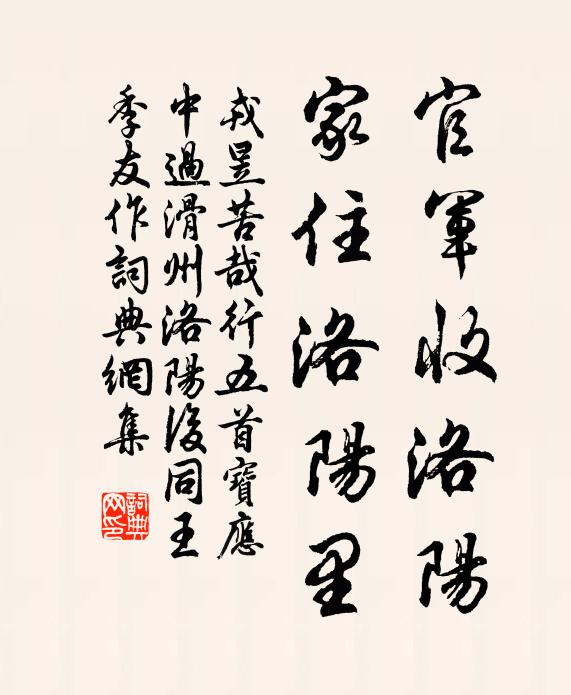 官軍收洛陽
家住洛陽里
戎昱苦哉行五首寶應
中過滑州洛陽後同王
季友作詞典網集
詞典網印